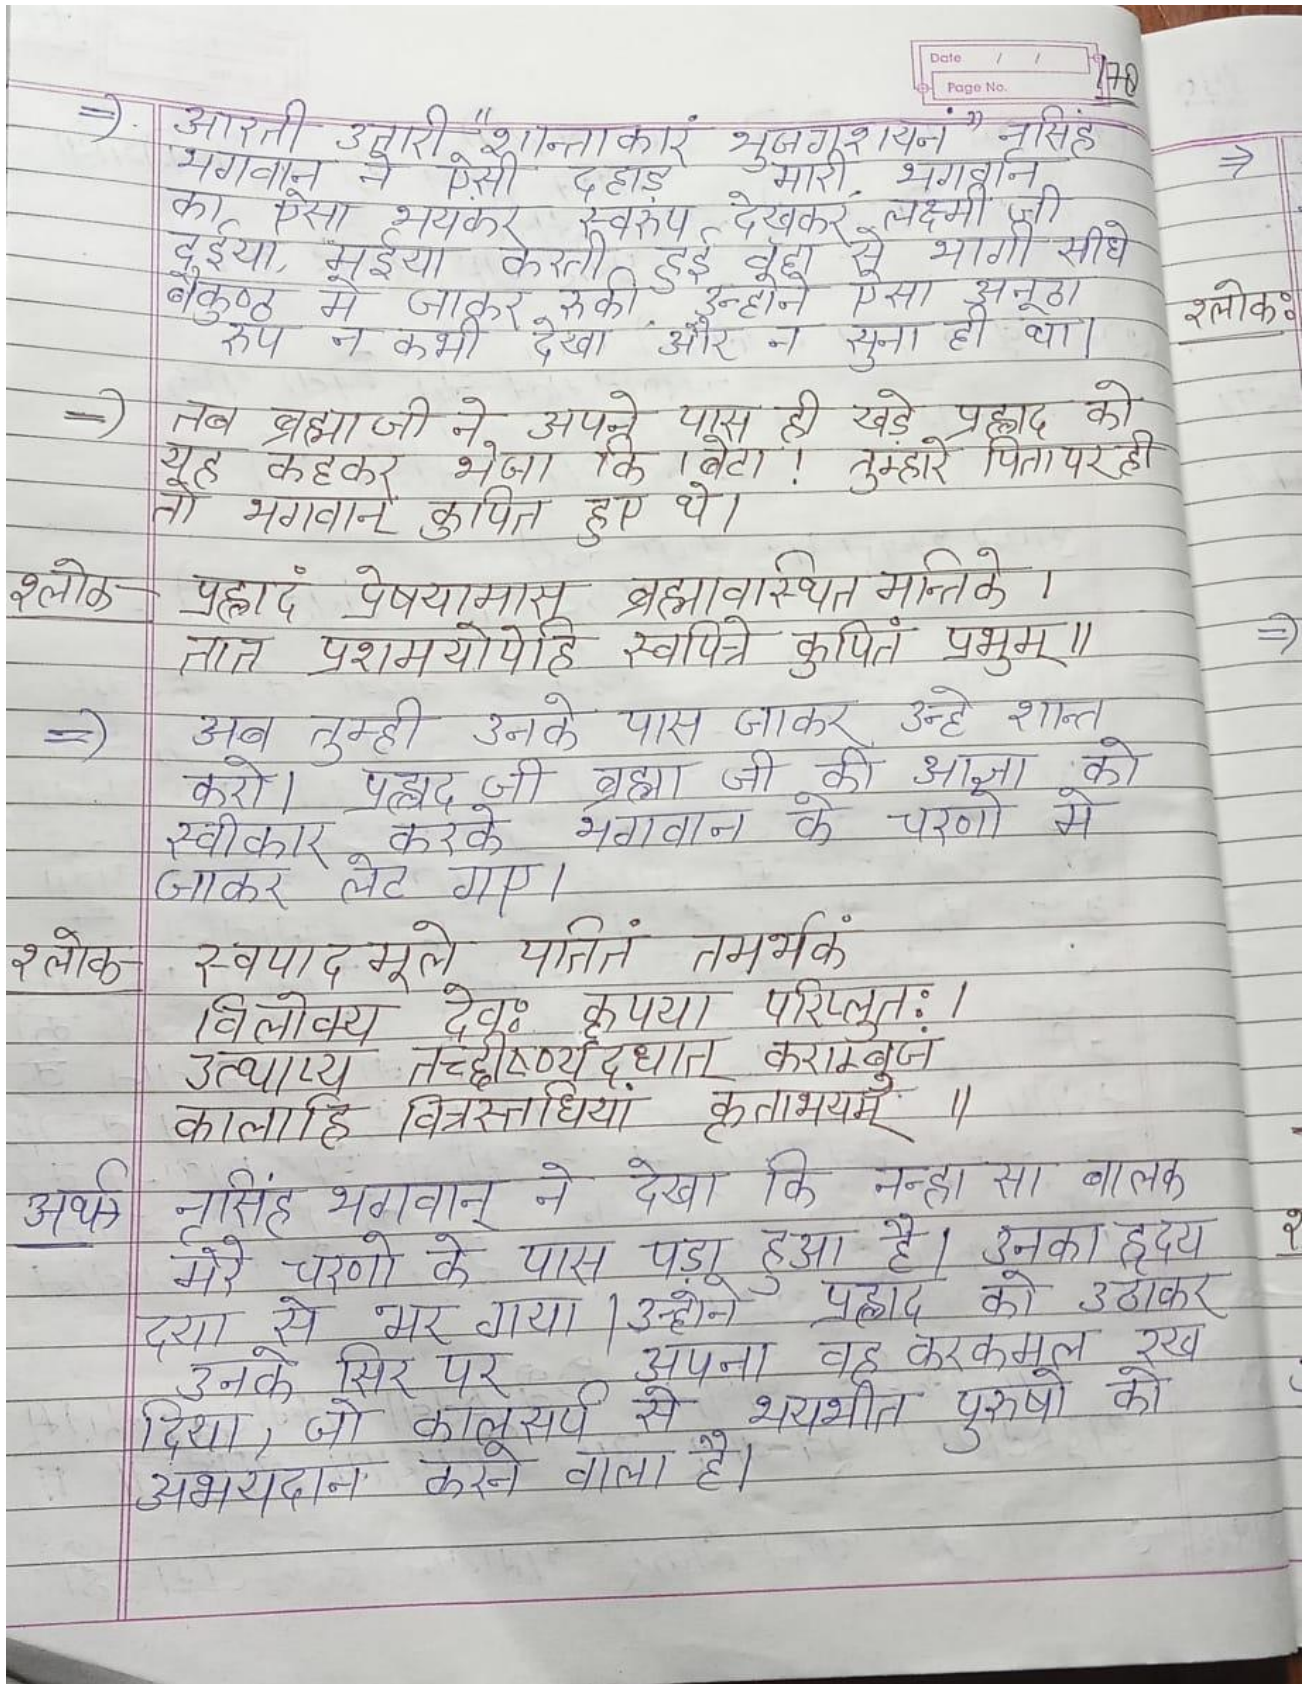 Date / /
Page No. 178
=> आरती उतारी "शान्ताकारं भुजगशयनं" नृसिंह
भगवान ने ऐसी दहाड़ मारी, भगवान
का ऐसा भयंकर स्वरुप देखकर लक्ष्मी जी
दईया, मईया करती हुई वहा से भागी सीधे
बैकुण्ठ में जाकर रुकी उन्होने ऐसा अनूठा
रुप न कभी देखा और न सुना ही था।
=> तब ब्रह्माजी ने अपने पास ही खड़े प्रह्लाद को
यह कहकर भेजा कि बेटा! तुम्हारे पिता पर ही
तो भगवान् कुपित हुए थे।
श्लोक- प्रह्लादं प्रेषयामास ब्रह्मावास्थित मन्तिके।
तात प्रशमयोपेहि स्वपित्रे कुपितं प्रभुम्॥
=> अब तुम्ही उनके पास जाकर उन्हे शान्त
करो। प्रह्लाद जी ब्रह्मा जी की आज्ञा को
स्वीकार करके भगवान के चरणो मे
जाकर लेट गए।
श्लोक- स्वपाद मूले पतितं तमर्भकं
विलोक्य देवः कृपया परिप्लुतः।
उत्थाप्य तच्छीर्ष्ण्यदधात् कराम्बुजं
कालाहि वित्रस्तधियां कृताभयम् ॥
अर्थ- नृसिंह भगवान् ने देखा कि नन्हा सा बालक
मेरे चरणो के पास पड़ा हुआ है। उनका हृदय
दया से भर गया। उन्होने प्रह्लाद को उठाकर
उनके सिर पर अपना वह करकमल रख
दिया, जो कालसर्प से भयभीत पुरुषो को
अभयदान करने वाला है।
=>
श्लोकः
=>